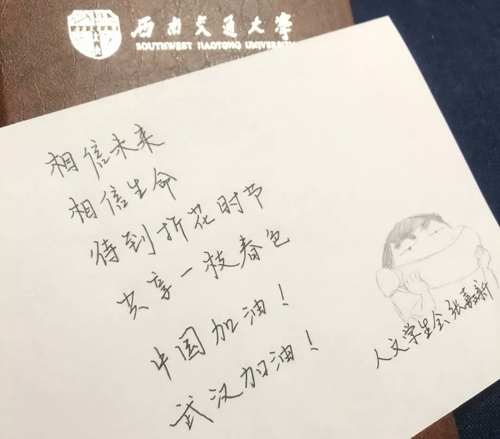 西南交通大学
SOUTHWEST JIAOTONG UNIVERSITY
相信未来
相信生命
待到折花时节
共享一枝春色
中国加油！
武汉加油！
人文学生会张嘉新